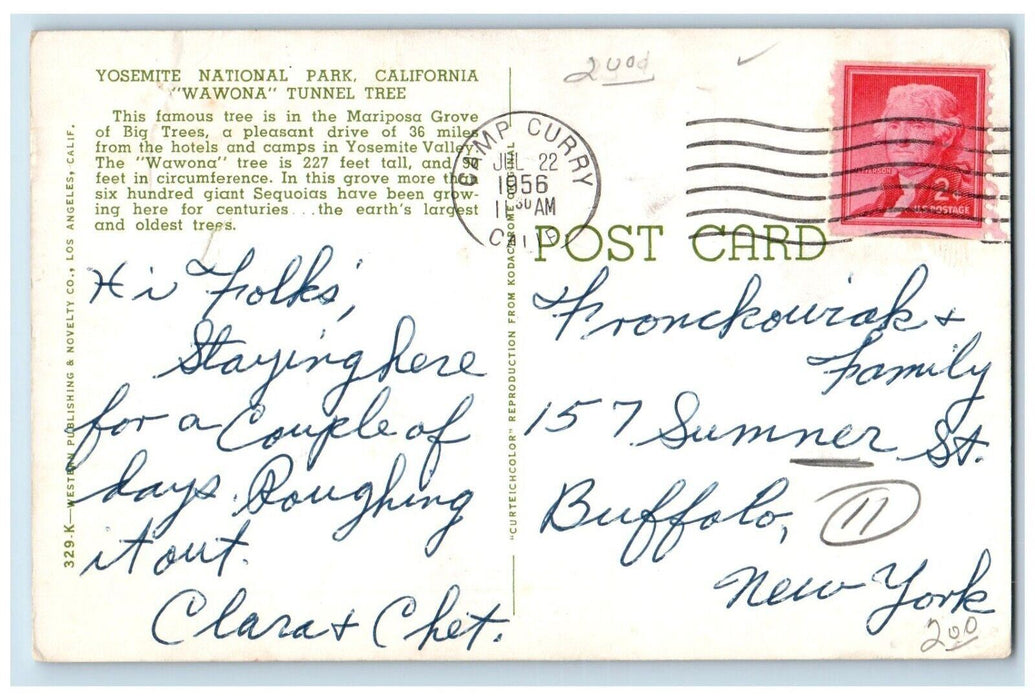 YOSEMITE NATIONAL PARK, CALIFORNIA
"WAWONA" TUNNEL TREE
This famous tree is in the Mariposa Grove
of Big Trees, a pleasant drive of 36 miles
from the hotels and camps in Yosemite Valley.
The "Wawona" tree is 227 feet tall, and
feet in circumference. In this grove more than
six hundred giant Sequoias have been grow-
ing here for centuries...the earth's largest
and oldest trees.
Hi Folks,
Staying here
for a Couple of
days. Roughing
it out.
Clara & Chet.
329-K—WESTERN PUBLISHING & NOVELTY CO., LOS ANGELES, CALIF.
"CURTEICHCOLOR" REPRODUCTION FROM KODACHROME ORIGINAL
CAMP CURRY
JUL 22
1956
11 30 AM
CALIF.
2¢
U.S. POSTAGE
POST CARD
Fronckowiak &
Family
157 Sumner St.
Buffalo, 11
New York
200